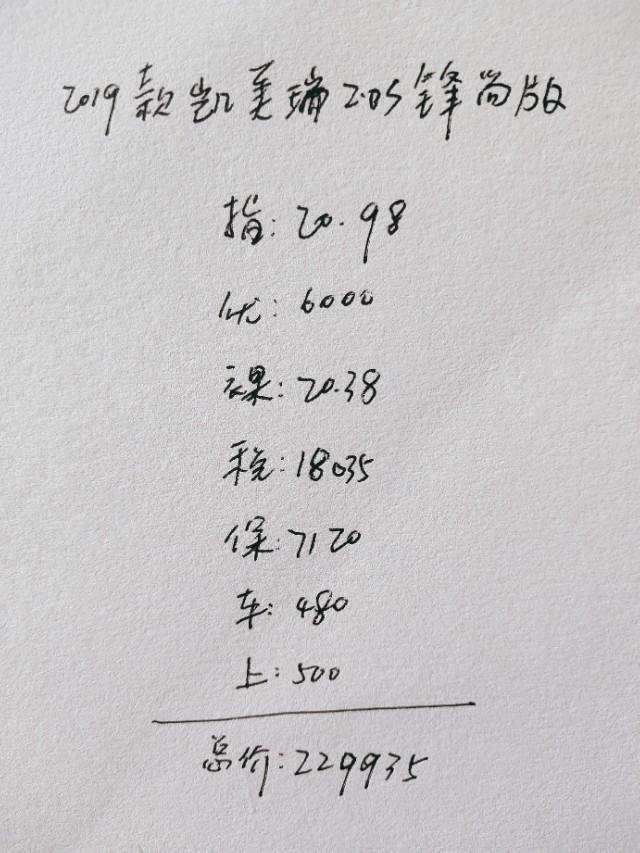 2019款凯美瑞2.0S锋尚版
指: 20.98
优: 6000
裸: 20.38
税: 18035
保: 7120
车: 480
上: 500
总价: 229935